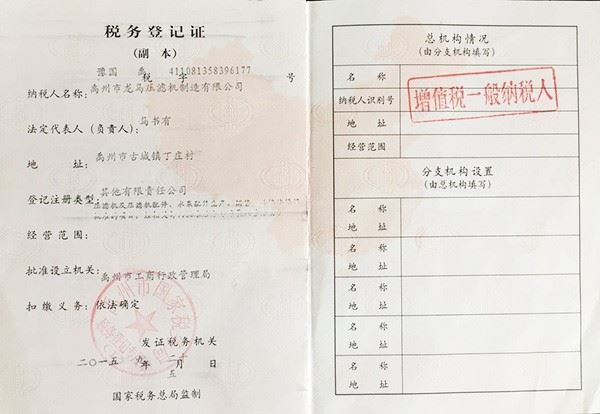 税务登记证
（副 本）
豫国 税 禹 字 411081358396177 号
纳税人名称：禹州市龙笃压滤机制造有限公司
法定代表人（负责人）：笃书有
地 址：禹州市古城镇丁庄村
登记注册类型：其他有限责任公司
经营范围：压滤机及压滤机配件、水泵配件生产、
批准设立机关：禹州市工商行政管理局
扣缴义务：依法确定
发证税务机关
二〇一五年 九 月 二十五
国家税务总局监制
州市国家税
总机构情况
（由分支机构填写）
名 称
纳税人识别号
地 址
经营范围
增值税一般纳税人
分支机构设置
（由总机构填写）
名 称
地 址
名 称
地 址
名 称
地 址
名 称
地 址
名 称
地 址